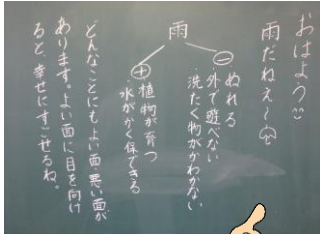 おはよう
雨だねえ～
雨
⊖
ぬれる
外で遊べない
洗たく物がかわかない
⊕
植物が育つ
水がかく保できる
どんなことにもよい面・悪い面が
あります。よい面に目を向け
ると、幸せにすごせるね。